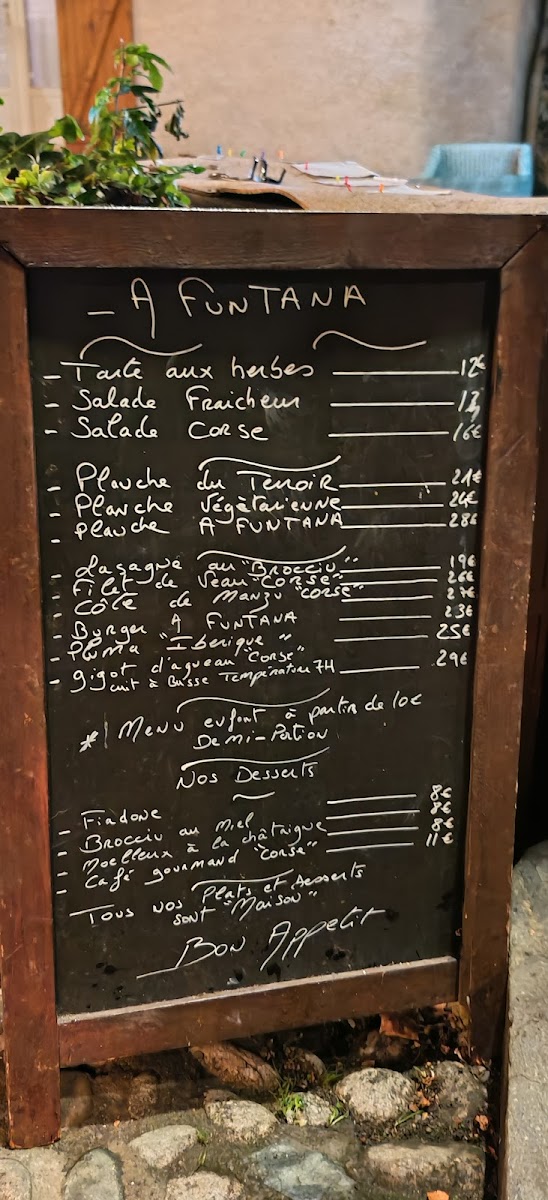 - A FUNTANA
- Tarte aux herbes 12€
- Salade Fraicheur
- Salade Corse 16€
- Planche du Terroir 21€
- Planche Végètarienne 24€
- Planche A FUNTANA 28€
- Lasagne au "Brocciu" 19€
- Filet de Veau "CORSE" 26€
- Côte de Manzu "CORSE" 27€
- Burger A FUNTANA 23€
- Pluma "Iberique" 25€
- gigot d'agneau "Corse" 29€
cuit à Basse Température 7H
* Menu enfant à partir de 10€
Demi-Portion
Nos Desserts
- Fiadone 8€
- Brocciu au Miel 8€
- Moelleux à la châtaigne 8€
- Café gourmand "CORSE" 11€
Tous nos Plats et desserts
sont "Maison"
Bon Appetit